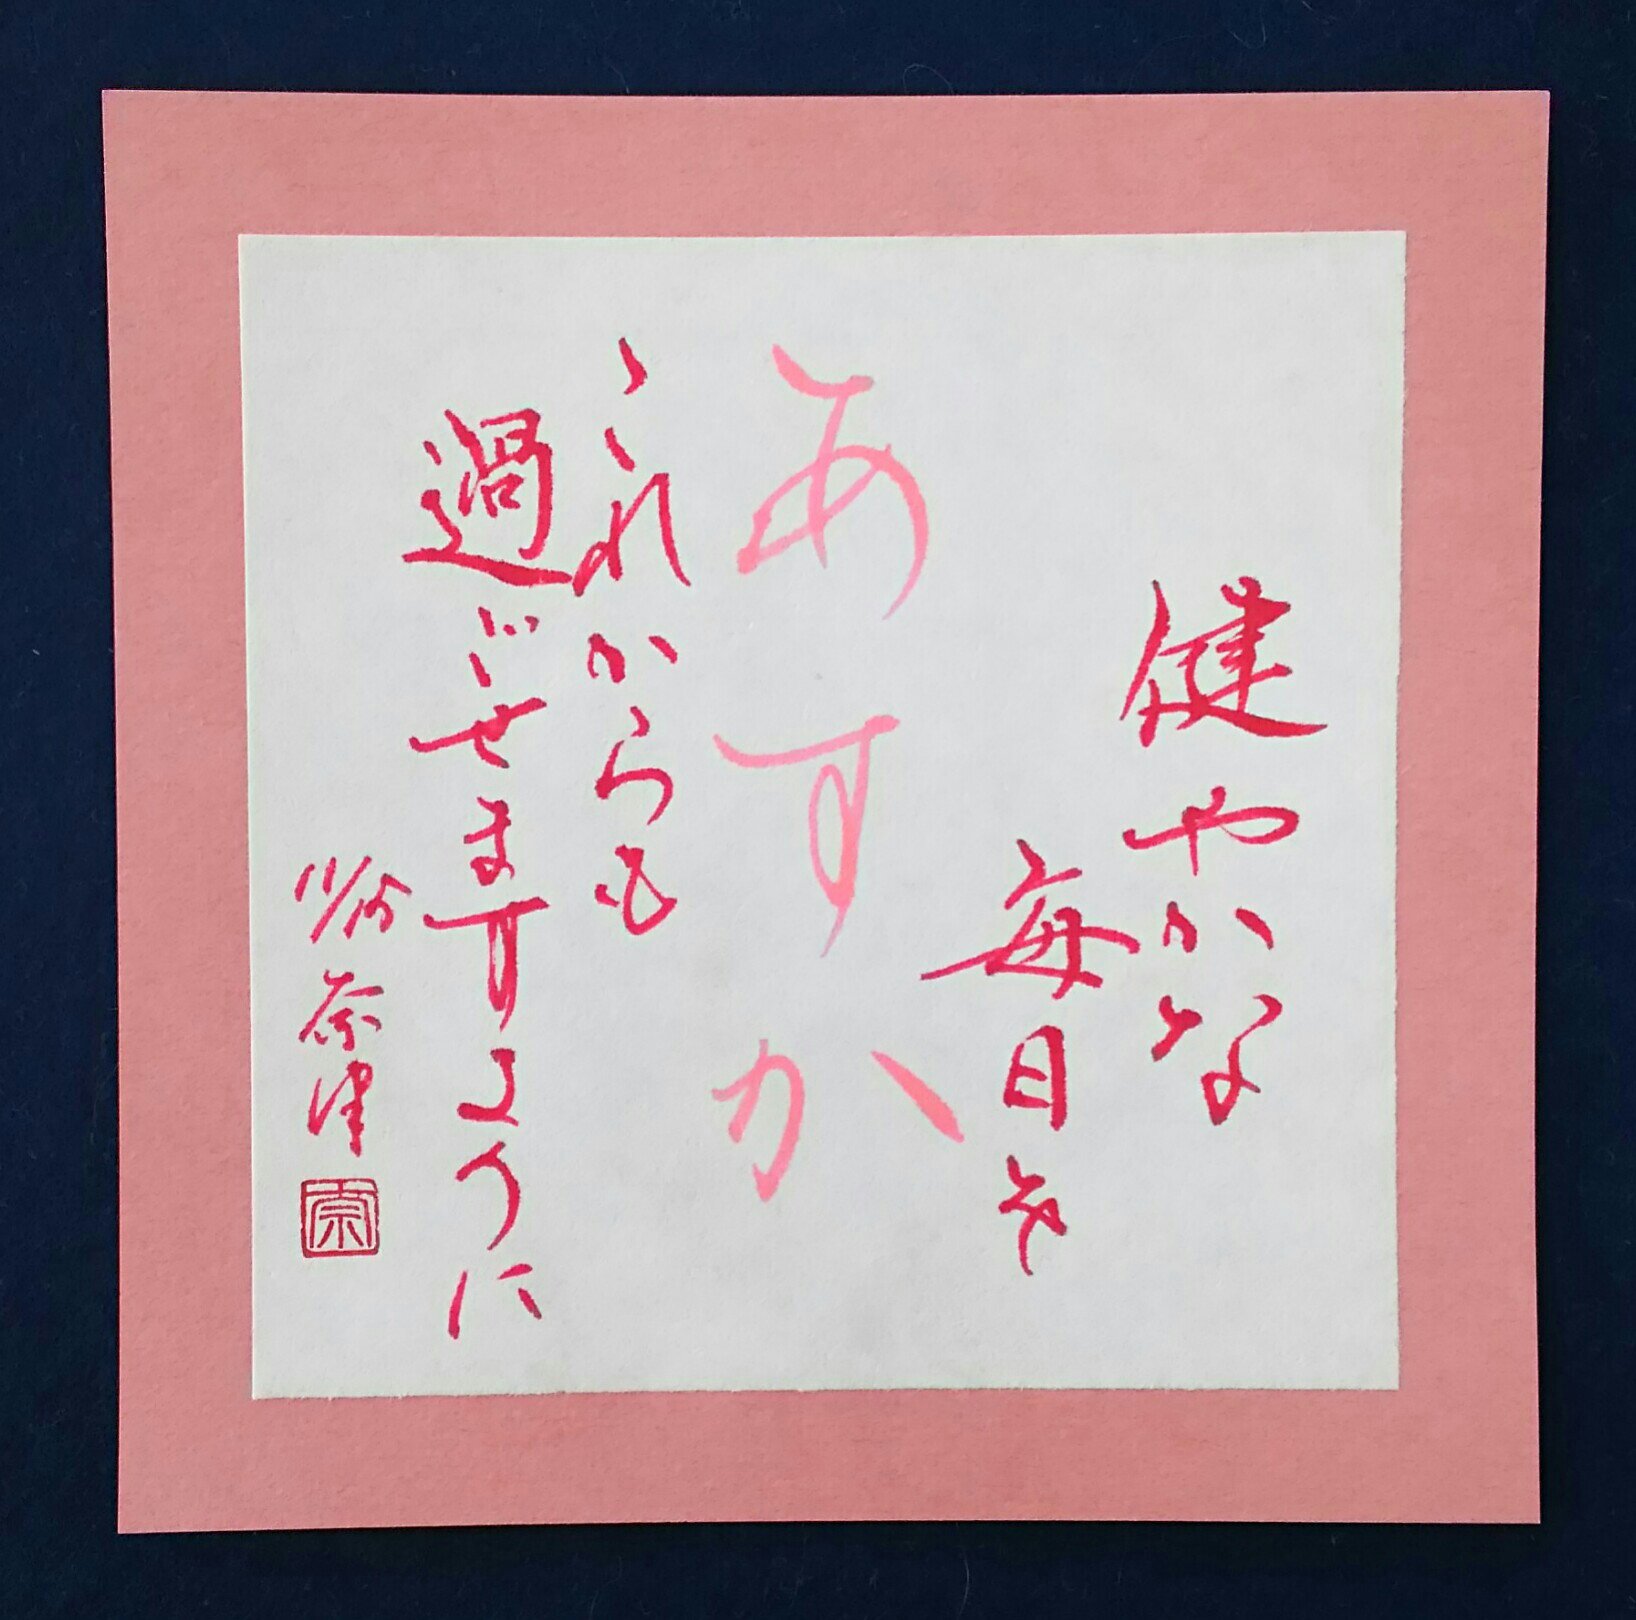 健やかな
毎日を
あすか
これからも
過ごせますように
11/15 奈津
奈